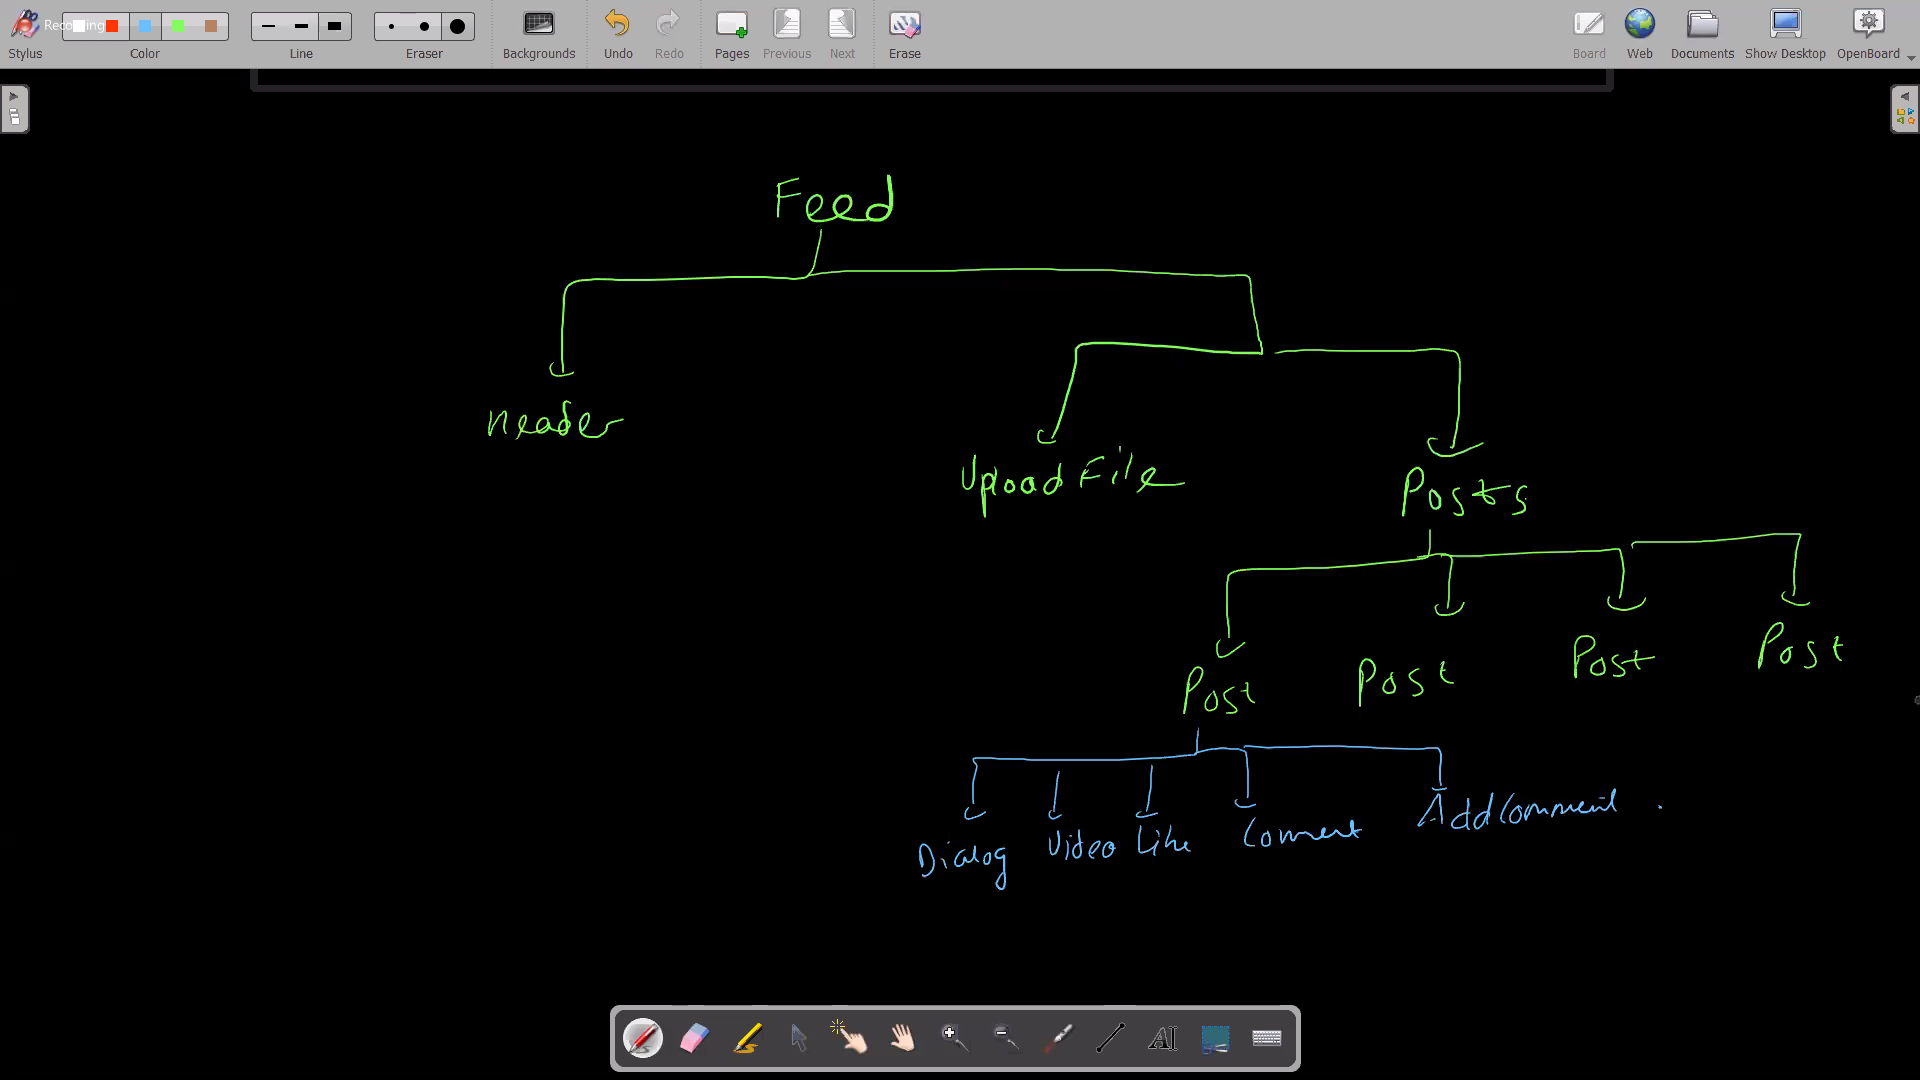 Recording
Stylus
Color
Line
Eraser
Backgrounds
Undo
Redo
Pages
Previous
Next
Erase
Board
Web
Documents
Show Desktop
OpenBoard
Feed
Header
UploadFile
Posts
Post Post Post Post
Dialog Video Like Comment AddComment .